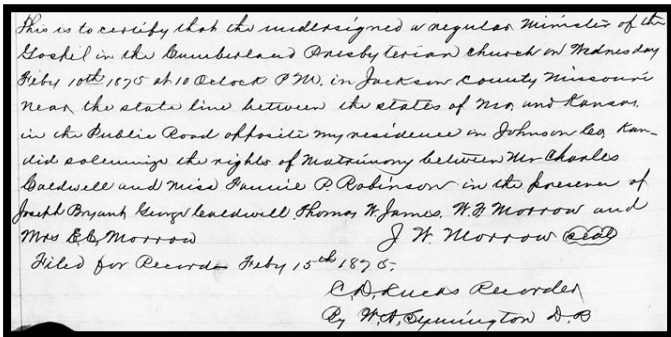 This is to certify that the undersigned a regular Minister of the
Gospel in the Cumberland Presbyterian church on Wednesday
Feby 10th 1875 at 10 Oclock P.M. in Jackson County Missouri
near the state line between the states of Mo, and Kansas,
in the Public Road opposite my residence in Johnson Co, Kan-
did solemnize the rights of Matrimony between Mr Charles
Caldwell and Miss Fannie P. Robinson in the presence of
Joseph Bryant George Caldwell, Thomas W. James, W. F. Morrow and
Mrs E. C. Morrow J W. Morrow seal
Filed for Record Feby 15th 1875.
C. D. Lucas Recorder
By W. A. Symington D. R